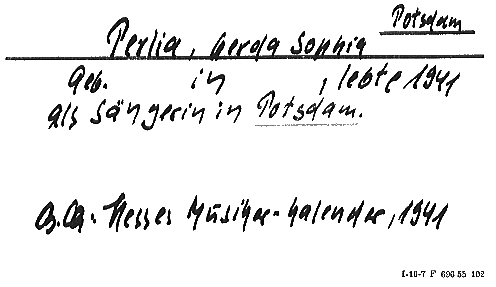 Potsdam
Perlia, Gerda Sophia
Geb. in , lebte 1941
als Sängerin in Potsdam.
Hesses Musiker-Kalender, 1941
I-10-7 F 696 55 102